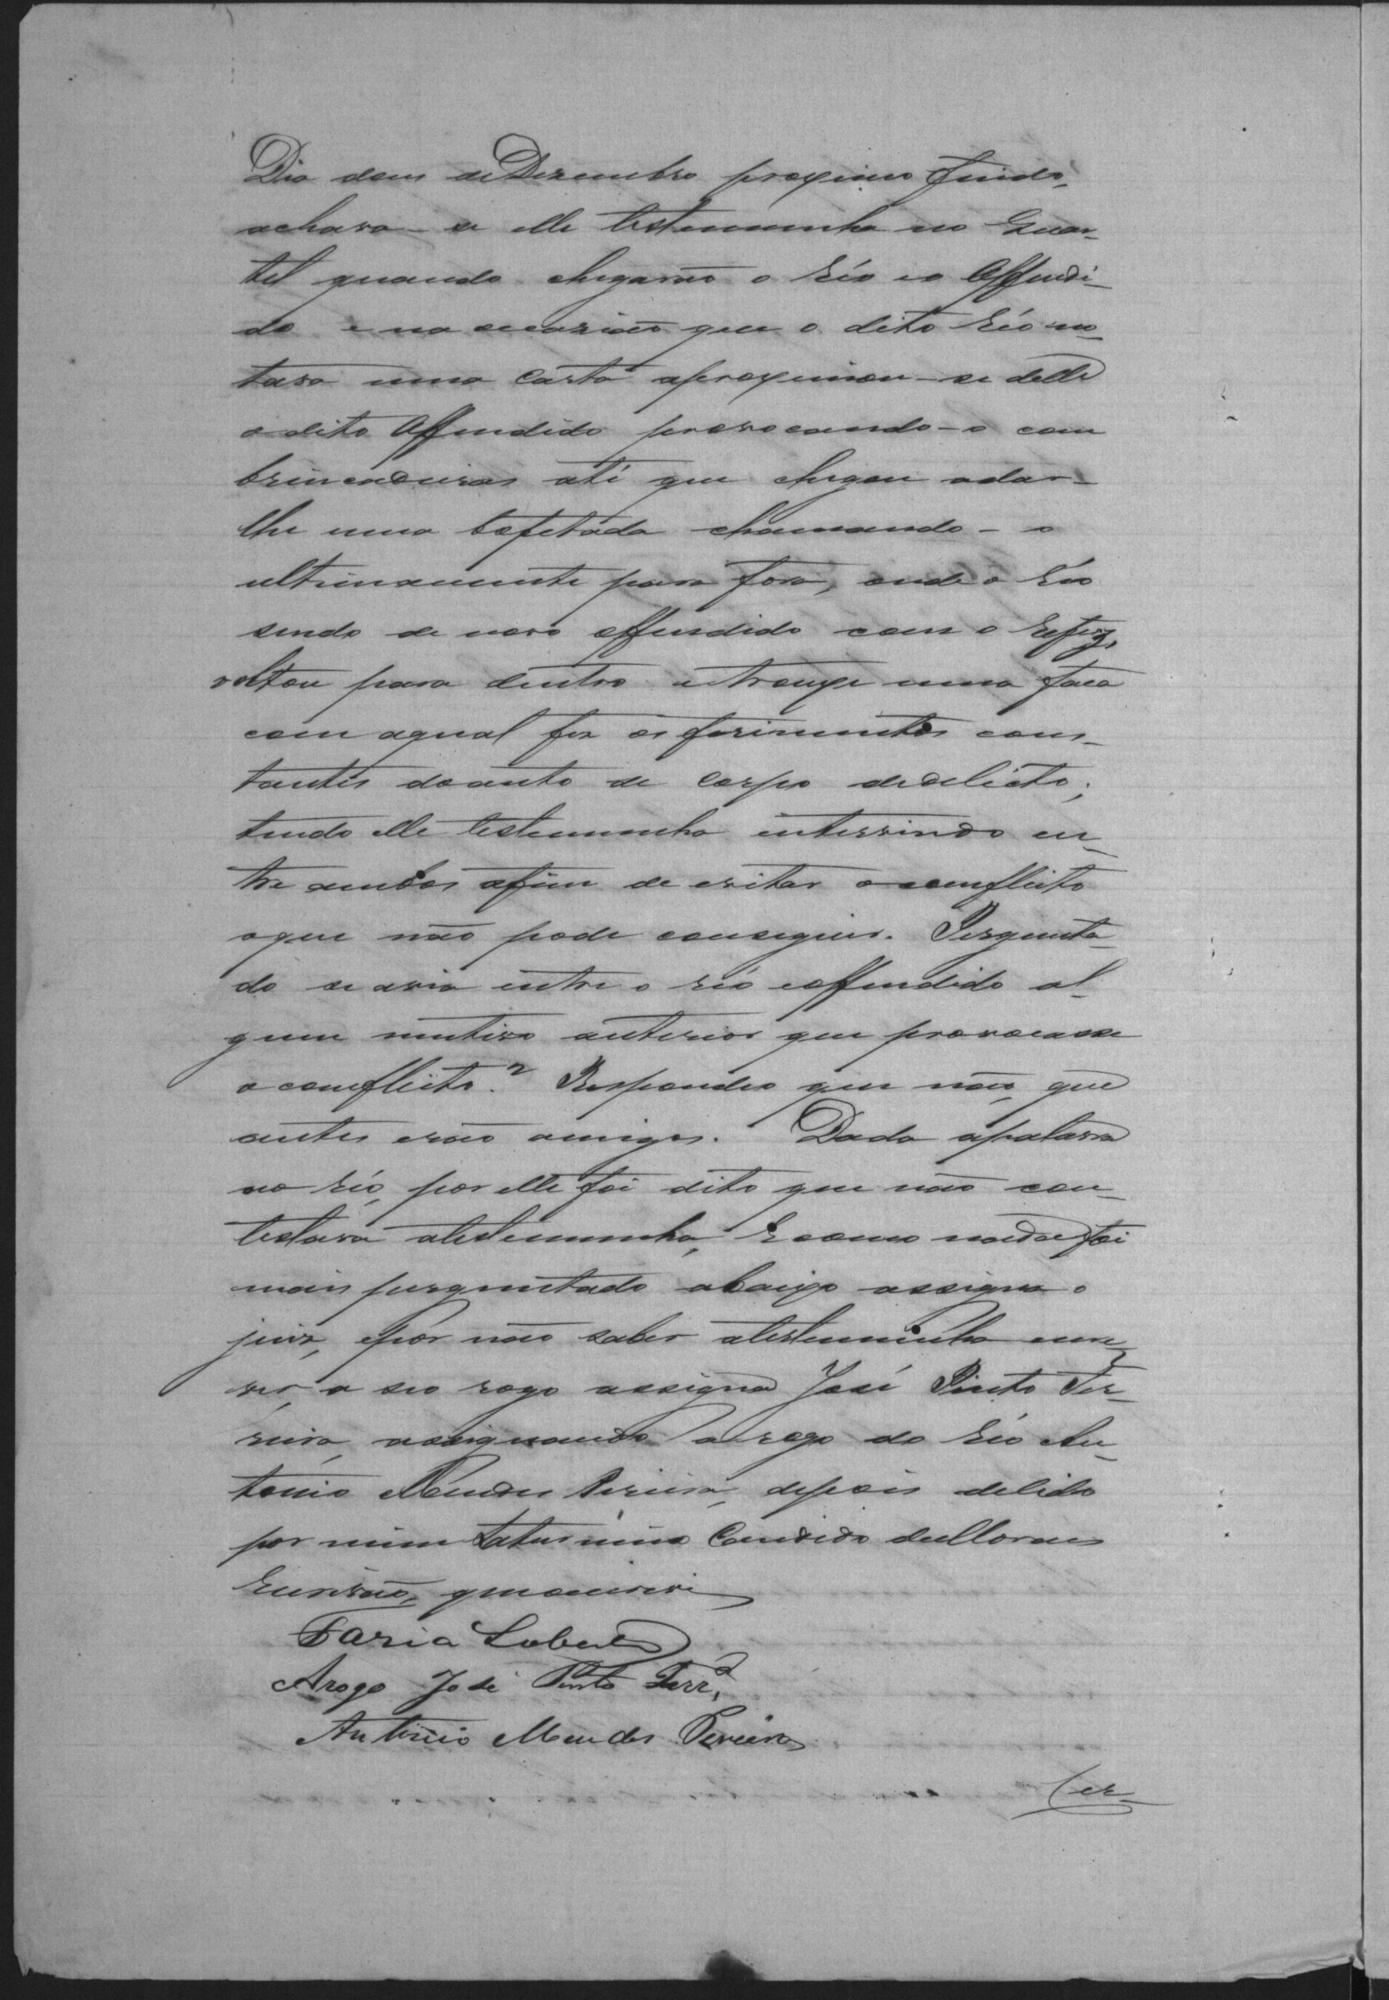 Dia dous de Dezembro proximo findo,
achava-se elle testemunha no Quar-
tel quando chegarão o Réo e o Offendi-
do e na occazião que o dito Réo no-
tava uma Carta aproximou-se delle
o dito Offendido provocando-o com
brincadeiras até que chegou a dar-
lhe uma bofetada chamando-o
ultimamente para fora, onde o Réo
sendo de novo offendido com o
voltou para dentro e trouxe uma faca
com aqual fez os ferimentos cons-
tantes do auto de Corpo de delicto;
tendo elle testemunha intervindo en-
tre ambos afim de evitar o comflicto
oque não pode conseguir. Pergunta-
do se avia entre o réo e offendido al-
gum mutivo anterior que provocasse
o comflicto? Respondeo que não, que
antes erão amigos. Dada apalavra
ao Réo, por elle foi dito que não con-
testava atestemunha, E como nada foi
mais perguntado abaixo assigna o
juiz, e por não saber atestemunha escre-
ver, a seo rogo assigna José Pinto Fer-
reira, assignando a rogo do Réo An-
tonio Mendes Pereira, depois de lido
por mim Saturnino Candido de Moraes
Escrivão, que o escrevi
Faria Lobato
Arogo José Pinto Ferrª.
Antonio Mendes Pereira
Cer-